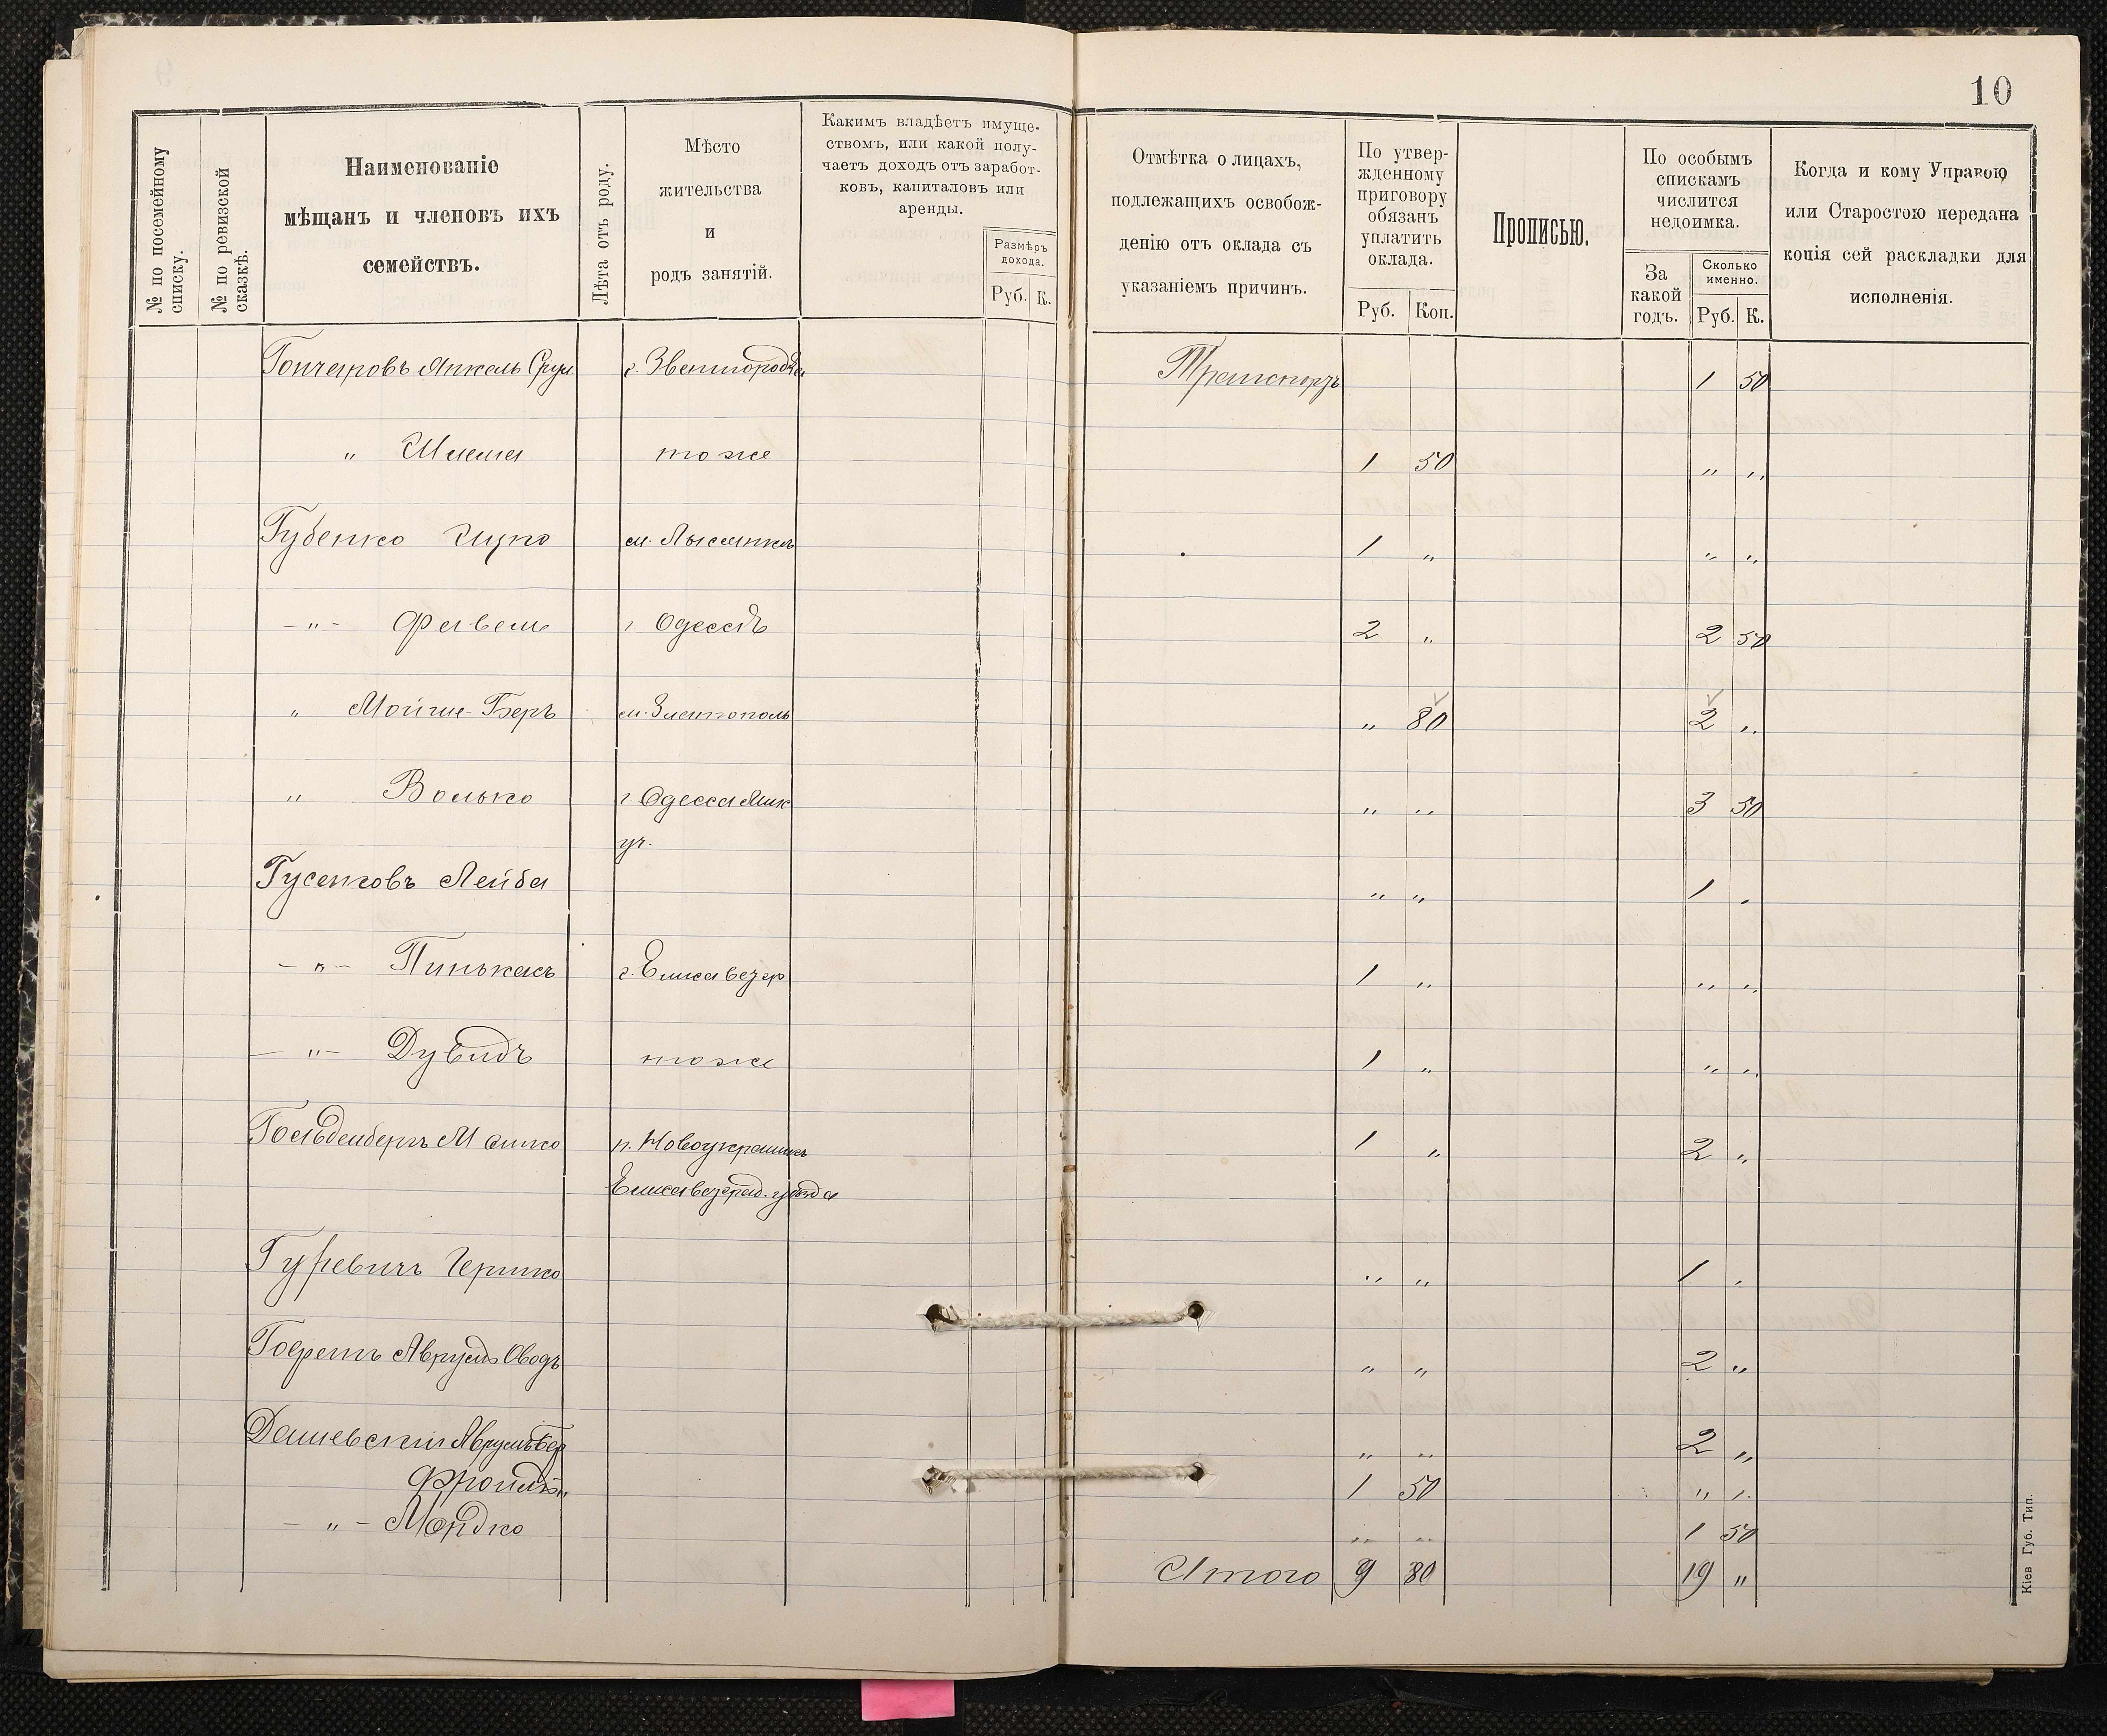 10
№ по посемейному списку.
№ по ревизской сказкѣ.
Наименованіе
мѣщанъ и членовъ ихъ
семействъ.
Лѣта отъ роду.
Мѣсто
жительства
и
родъ занятій.
Какимъ владѣетъ имуще-
ствомъ, или какой полу-
чаетъ доходъ отъ заработ-
ковъ, капиталовъ или
аренды.
Размѣръ
дохода.
Руб. К.
Отмѣтка о лицахъ,
подлежащихъ освобож-
денію отъ оклада съ
указаніемъ причинъ.
По утвер-
жденному
приговору
обязанъ
уплатить
оклада.
Руб. Коп.
Прописью.
По особымъ
спискамъ
числится
недоимка.
За
какой
годъ.
Сколько
именно.
Руб. К.
Когда и кому Управою
или Старостою передана
копія сей раскладки для
исполненія.
Гончаровъ Янкель Срул. г. Звенигородка Транспортъ 1 50
" Шлема тоже 1 50 " "
Губенко Ицко м. Лысянка 1 " " "
-"- Файвель г. Одесса 2 " 2 50
" Мойше-Беръ м. Златополь " 80 2 "
" Волько г. Одесса Мик " " 3 50
уч.
Гусенковъ Лейба " " 1 "
-"- Пинькасъ г. Елисаветгр 1 " " "
-"- Дувидъ тоже 1 " " "
Гольденбергъ Манко п. Новоукраинка 1 " 2 "
Елисаветград. уѣзда
Гуревичъ Гершко " " 1 "
Аврумъ Овадь " " 2 "
Дашевскій Аврумъ Бер " " 2 "
Фроимъ " 1 50 " "
-"- Мордко " " 1 50
Итого 9 80 19 "
Кіев Губ. Тип.